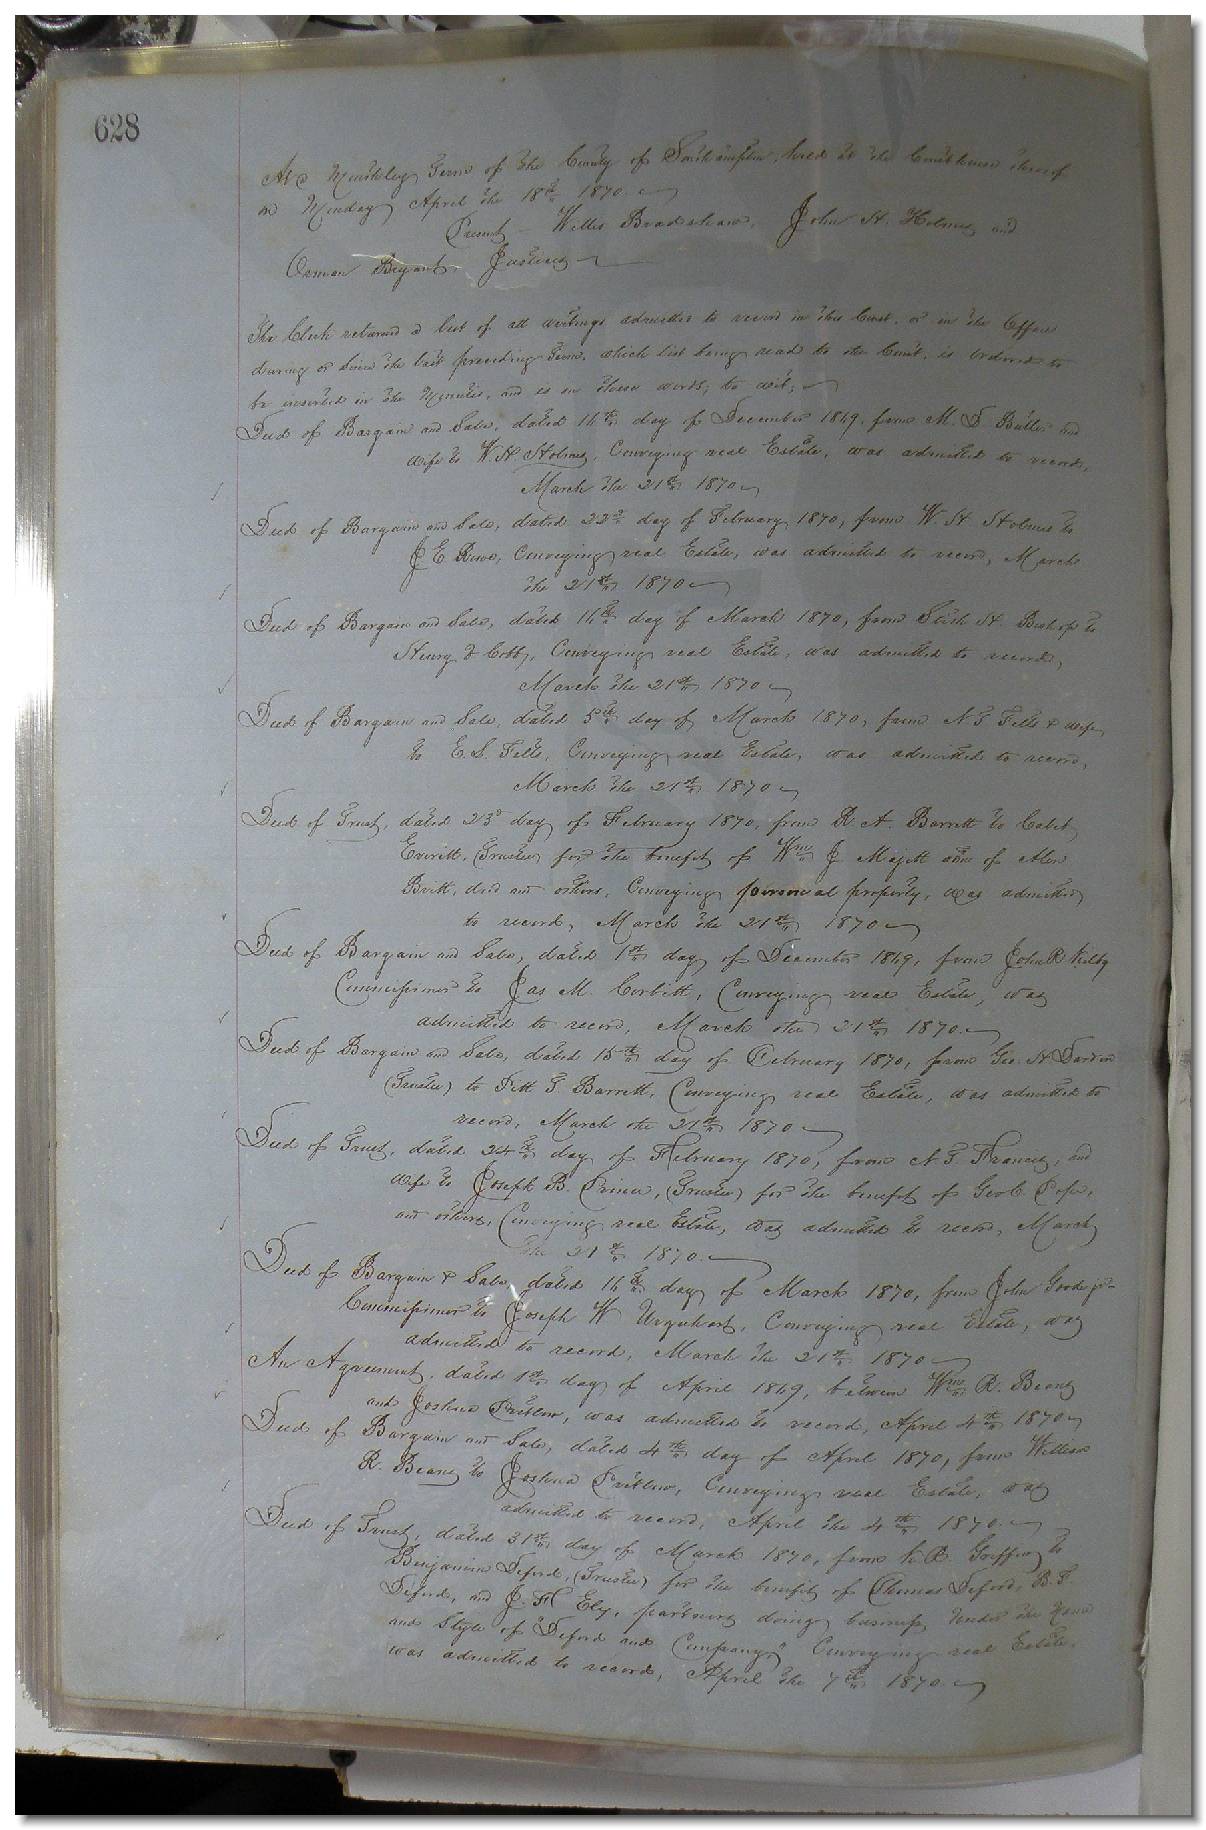 628
At a Monthly Term of the County of Southampton, held at the Courthouse thereof
on Monday April the 18th 1870.
Present - Willis Bradshaw, John H. Holmes and
Orman Bryant, Justices
The Clerk returned a list of all writings admitted to record in this Court, or in the Office
during or since the last preceeding Term, which list being read to the Court, is ordered to
be inserted in the Minutes, and is in these words, to wit;
Deed of Bargain and Sale, dated 14th day of December 1869, from M. D. Butler and
wife to W. H. Holmes, Conveying real Estate, was admitted to record,
March the 21st 1870
Deed of Bargain and Sale, dated 22d day of February 1870, from W. H. Holmes to
J E Rowe, Conveying real Estate, was admitted to record, March
the 21st 1870
Deed of Bargain and Sale, dated 14th day of March 1870, from H. Bishop to
Henry Cobb, Conveying real Estate, was admitted to record,
March the 21st 1870
Deed of Bargain and Sale, dated 5th day of March 1870, from N T Felts & wife
to E. S. Felts, Conveying real Estate, was admitted to record,
March the 21st 1870
Deed of Trust, dated 23d day of February 1870, from R A. Barrett to
Everitt, (Trustee) for the benefit of Wm J Majett adm of Alex
Britt, decd and others, Conveying personal property, was admitted
to record, March the 21st 1870
Deed of Bargain and Sale, dated 1st day of December 1869, from John R Kilby
Commissioner to Jas M. Corbitt, Conveying real Estate, was
admitted to record, March the 21st 1870.
Deed of Bargain and Sale, dated 15th day of February 1870, from Geo. H Darden
(Trustee) to T. Barrett, Conveying real Estate, was admitted to
record, March the 21st 1870
Deed of Trust, dated 24th day of February 1870, from N T. Francis, and
wife to Joseph B. Prince, (Trustee) for the benefit of Geo C. Pope,
and others, Conveying real Estate, was admitted to record, March
the 21st 1870.
Deed of Bargain & Sale, dated 14th day of March 1870, from John Goode
Commissioner to Joseph W Urquhart, Conveying real Estate, was
admitted to record, March the 21st 1870
An Agreement, dated 1st day of April 1869, between Wm R. Beane
and Joshua Pretlow, was admitted to record, April 4th 1870
Deed of Bargain and Sale, dated 4th day of April 1870, from William
R. Beane to Joshua Pretlow, Conveying real Estate, was
admitted to record, April the 4th 1870.
Deed of Trust, dated 31st day of March 1870, from R. Griffin to
Benjamin Deford, (Trustee) for the benefit of Thomas Deford, B. F.
Deford, and J. H Ely, partners doing business, under the Name
and Style of Deford and Company, Conveying real Estate,
was admitted to record, April the 7th 1870.